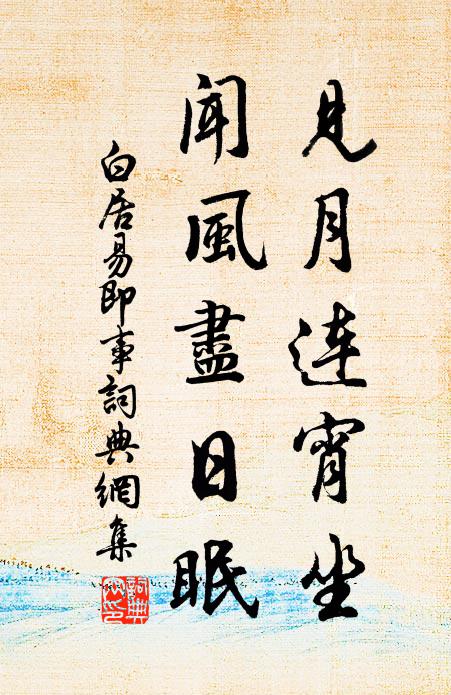 見月連宵坐
聞風盡日眠
白居易即事詞典網集